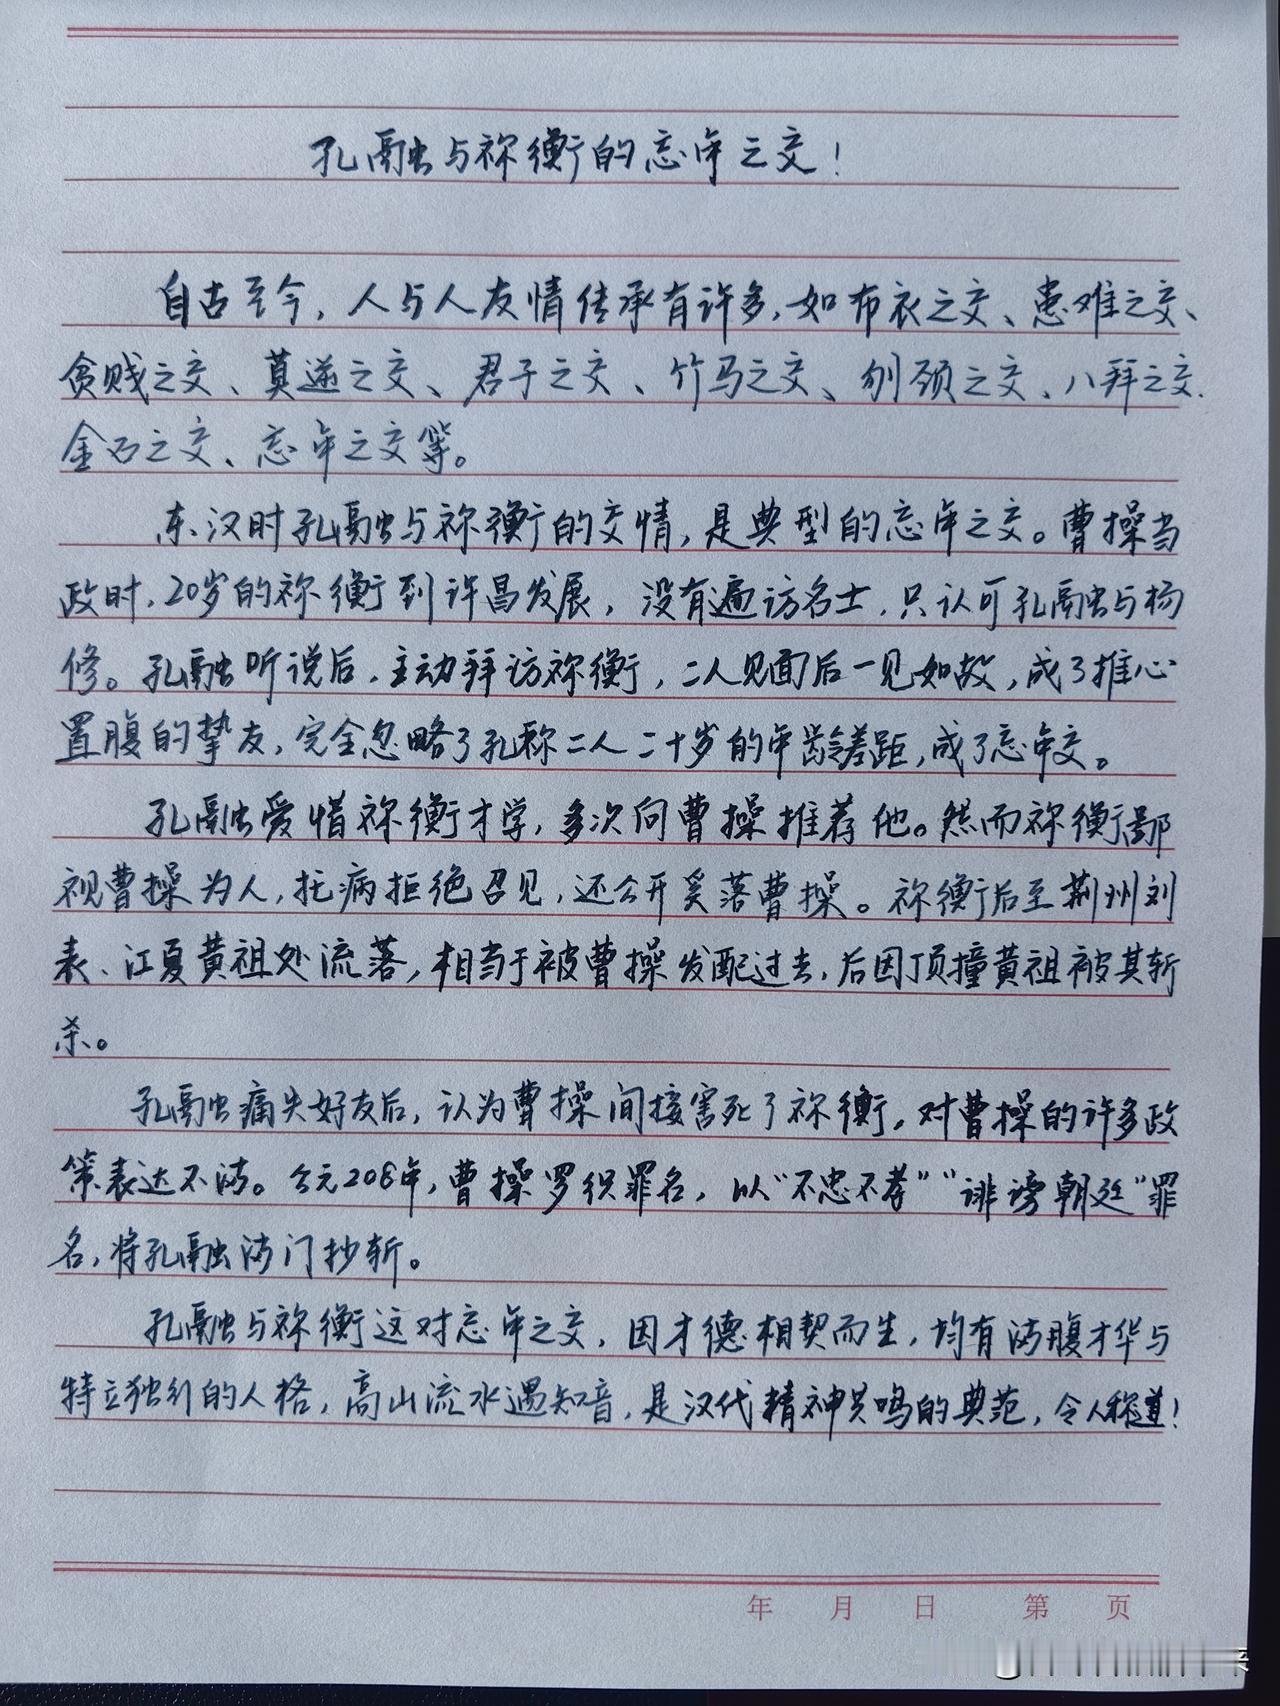 孔融与祢衡的忘年之交！
自古至今，人与人友情传承有许多，如布衣之交、患难之交、
贪贱之交、莫逆之交、君子之交、竹马之交、刎颈之交、八拜之交、
金石之交、忘年之交等。
东汉时孔融与祢衡的交情，是典型的忘年之交。曹操当
政时，20岁的祢衡到许昌发展，没有遍访名士，只认可孔融与杨
修。孔融听说后，主动拜访祢衡，二人见面后一见如故，成了推心
置腹的挚友，完全忽略了孔称二人二十岁的年龄差距，成了忘年交。
孔融爱惜祢衡才学，多次向曹操推荐他。然而祢衡鄙
视曹操为人，托病拒绝召见，还公开奚落曹操。祢衡后至荆州刘
表、江夏黄祖处流落，相当于被曹操发配过去，后因顶撞黄祖被其斩
杀。
孔融痛失好友后，认为曹操间接害死了祢衡，对曹操的许多政
策表达不满。公元208年，曹操罗织罪名，以“不忠不孝”“诽谤朝廷”罪
名，将孔融满门抄斩。
孔融与祢衡这对忘年之交，因才德相契而生，均有满腹才华与
特立独行的人格，高山流水遇知音，是汉代精神共鸣的典范，令人称道！
年 月 日 第 页